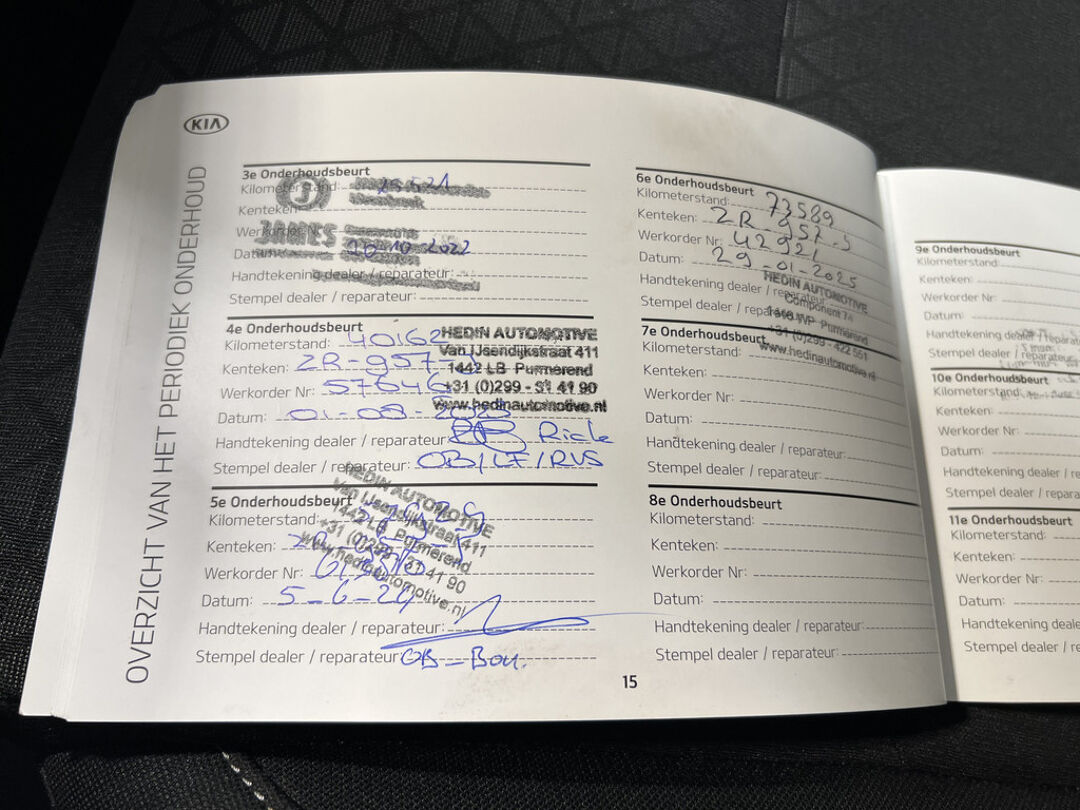 KIA
OVERZICHT VAN HET PERIODIEK ONDERHOUD
3e Onderhoudsbeurt
Kilometerstand:
Kenteken:
JAMES
Datum: 10-2022
Handtekening dealer / reparateur:
Stempel dealer / reparateur:
4e Onderhoudsbeurt
Kilometerstand: 40162
Kenteken: ZR-957-
Werkorder Nr: 57646
Datum: 01-08-
Handtekening dealer / reparateur: Rick
Stempel dealer / reparateur:
HEDIN AUTOMOTIVE
Van IJsendijkstraat 411
1442 LB Purmerend
+31 (0)299 - 31 41 90
www.hedinautomotive.nl
5e Onderhoudsbeurt
Kilometerstand:
Kenteken:
Werkorder Nr:
Datum: 5-6-24
Handtekening dealer / reparateur:
Stempel dealer / reparateur: OB-Bou.
HEDIN AUTOMOTIVE
Van IJsendijkstraat 411
1442 LB Purmerend
+31 (0)299 - 31 41 90
www.hedinautomotive.nl
6e Onderhoudsbeurt
Kilometerstand: 73589
Kenteken: ZR-957-S
Werkorder Nr: 42921
Datum: 29-01-2025
Handtekening dealer / reparateur:
Stempel dealer / reparateur:
HEDIN AUTOMOTIVE
Component 74
1446 WP Purmerend
+31 (0)299 - 422 551
www.hedinautomotive.nl
7e Onderhoudsbeurt
Kilometerstand:
Kenteken:
Werkorder Nr:
Datum:
Handtekening dealer / reparateur:
Stempel dealer / reparateur:
8e Onderhoudsbeurt
Kilometerstand:
Kenteken:
Werkorder Nr:
Datum:
Handtekening dealer / reparateur:
Stempel dealer / reparateur:
15
9e Onderhoudsbeurt
Kilometerstand:
Kenteken:
Werkorder Nr:
Datum:
Handtekening dealer / reparat
Stempel dealer / reparateur
10e Onderhoudsbeurt
Kilometerstand:
Kenteken:
Werkorder Nr:
Datum:
Handtekening dealer / r
Stempel dealer / repara
11e Onderhoudsbeurt
Kilometerstand:
Kenteken:
Werkorder Nr:
Datum:
Handtekening deale
Stempel dealer / re